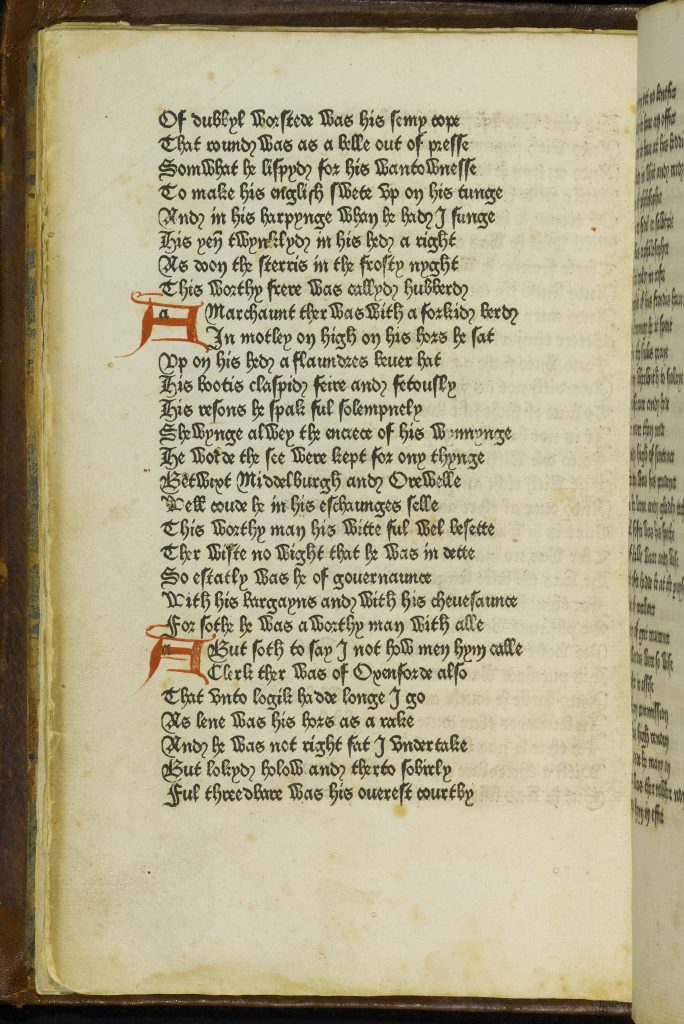 Of dubbyl worstede was his semy cope
That round was as a belle out of presse
Somwhat he lispyd for his wantownesse
To make his english swete vp on his tunge
And in his harpynge whan he had I sunge
His yen twynklyd in his hed a right
As doon the sterris in the frosty nyght
This worthy frere was callyd hubberd
A Marchaunt ther was with a forkid berd
In motley on high on his hors he sat
Vp on his hed a flaundres beuer hat
His bootis claspid feire and fetously
His resons he spak ful solempnely
Shewynge alwey the encrece of his wynnynge
He wolde the see were kept for ony thynge
Betwixt Middelburgh and Orewelle
Well coude he in his eschaunges selle
This worthy man his witte ful wel besette
Ther wiste no wight that he was in dette
So estatly was he of gouernaunce
With his bargayns and with his cheuesaunce
For sothe he was a worthy man with alle
But soth to say I not how men hym calle
A Clerk ther was of Oxenforde also
That vnto logik hadde longe I go
As lene was his hors as a rake
And he was not right fat I vndertake
But lokyd holow and therto sobirly
Ful threedbare was his ouerest courtby